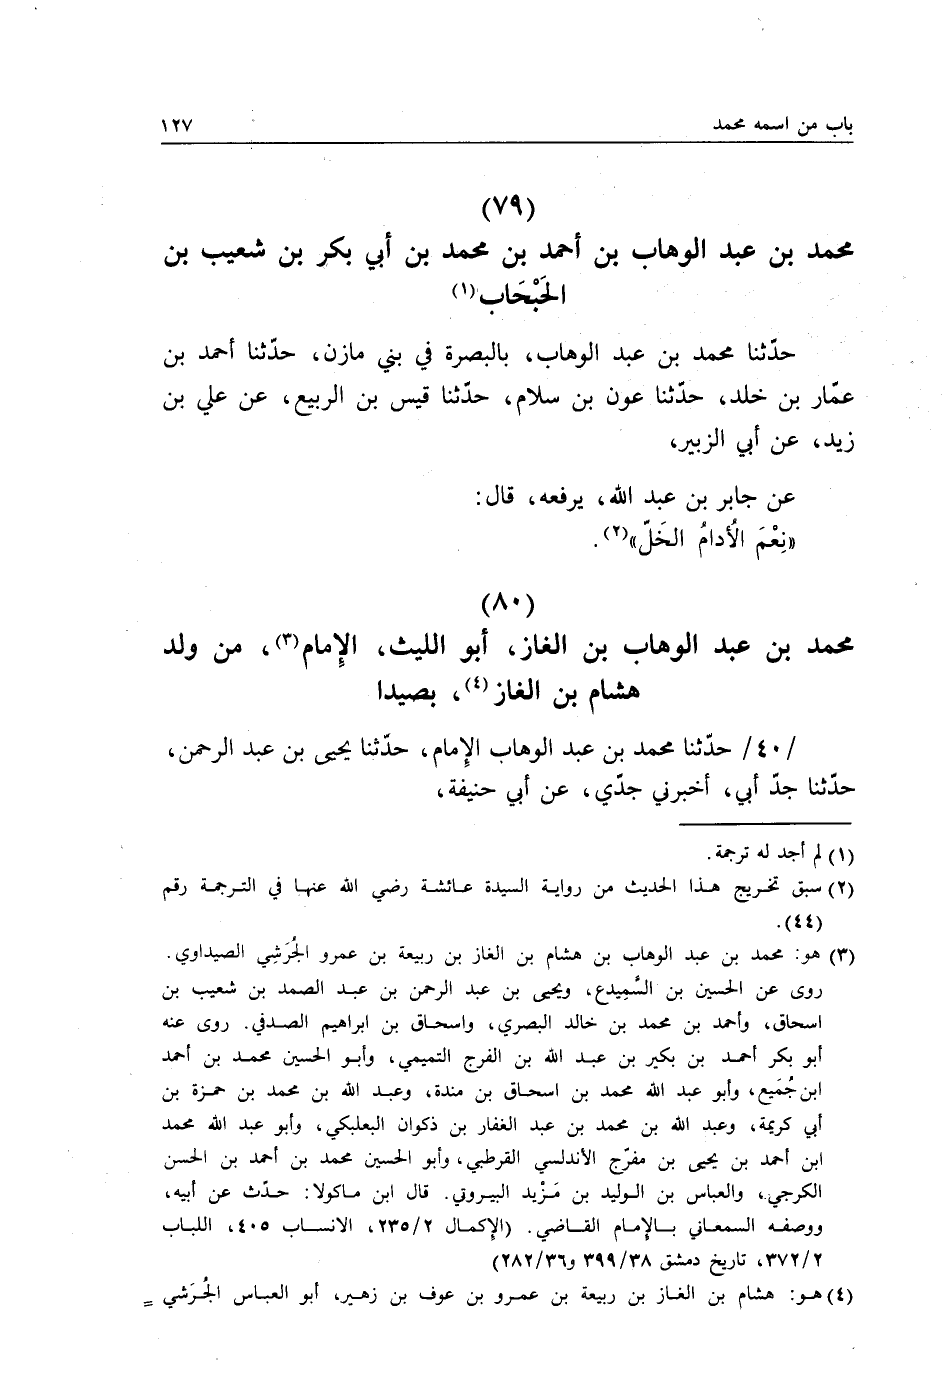 باب من اسمه محمد ١٢٧
(٧٩)
محمد بن عبد الوهاب بن أحمد بن محمد بن أبي بكر بن شعيب بن
الحَبْحَاب(١)
حدّثنا محمد بن عبد الوهاب، بالبصرة في بني مازن، حدّثنا أحمد بن
عمّار بن خلد، حدّثنا عون بن سلام، حدّثنا قيس بن الربيع، عن علي بن
زيد، عن أبي الزبير،
عن جابر بن عبد الله، يرفعه، قال:
«نِعْمَ الأُدامُ الخَلّ»(٢).
(٨٠)
محمد بن عبد الوهاب بن الغاز، أبو الليث، الإمام(٣)، من ولد
هشام بن الغاز(٤)، بصيدا
/٤٠/ حدّثنا محمد بن عبد الوهاب الإمام، حدّثنا يحيى بن عبد الرحمن،
حدّثنا جدّ أبي، أخبرني جدّي، عن أبي حنيفة،
(١) لم أجد له ترجمة.
(٢) سبق تخريج هذا الحديث من رواية السيدة عائشة رضي الله عنها في الترجمة رقم
(٤٤).
(٣) هو: محمد بن عبد الوهاب بن هشام بن الغاز بن ربيعة بن عمرو الجُرَشِي الصيداوي.
روى عن الحسين بن السَّمِيدع، ويحيى بن عبد الرحمن بن عبد الصمد بن شعيب بن
اسحاق، وأحمد بن محمد بن خالد البصري، واسحاق بن ابراهيم الصدفي. روى عنه
أبو بكر أحمد بن بكير بن عبد الله بن الفرج التميمي، وأبو الحسين محمد بن أحمد
ابن جُمَيع، وأبو عبد الله محمد بن اسحاق بن مندة، وعبد الله بن محمد بن حمزة بن
أبي كريمة، وعبد الله بن محمد بن عبد الغفار بن ذكوان البعلبكي، وأبو عبد الله محمد
ابن أحمد بن يحيى بن مفرّج الأندلسي القرطبي، وأبو الحسين محمد بن أحمد بن الحسن
الكرجي، والعباس بن الوليد بن مَزْيد البيروتي. قال ابن ماكولا: حدّث عن أبيه،
ووصفه السمعاني بالإمام القاضي. (الإكمال ٢٣٥/٢، الانساب ٤٠٥، اللباب
٣٧٢/٢، تاريخ دمشق ٣٩٩/٣٨ و٢٨٢/٣٦)
(٤) هو: هشام بن الغاز بن ربيعة بن عمرو بن عوف بن زهير، أبو العباس الجُرَشي =